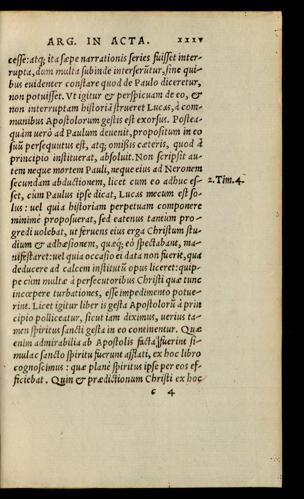 ARG. IN ACTA. XXXV
cesse: atq; ita sæpe narrationis series fuisset inter-
rupta, dum multa subinde interserũtur, sine qui-
bus euidenter constare quod de Paulo diceretur,
non potuisset. Vt igitur & perspicuam de eo, &
non interruptam historiã strueret Lucas, à com-
munibus Apostolorum gestis est exorsus. Postea-
quàm verò ad Paulum deuenit, propositum in eo
suũ persequutus est, atq; omißis cæteris, quod à
principio instituerat, absoluit. Non scripsit au-
tem neque mortem Pauli, neque eius ad Neronem
secundam abductionem, licet cum eo adhuc es-
2. Tim. 4.
set, cùm Paulus ipse dicat, Lucas mecum est so-
lus: uel quia historiam perpetuam componere
minimè proposuerat, sed eatenus tantum pro-
gredi uolebat, ut feruens eius erga Christum stu-
dium & adhæsionem, quæq; eò spectabant, ma-
nifestaret: uel quia occasio ei data non fuerit, qua
deducere ad calcem institutũ opus liceret: quip-
pe cùm multæ à persecutoribus Christi quæ tunc
incœpere turbationes, esse impedimento potue-
rint. Licet igitur liber is gesta Apostolorũ à prin
cipio polliceatur, sicut iam diximus, uerius ta-
men spiritus sancti gesta in eo continentur. Quæ
enim admirabilia ab Apostolis facta fuerint si-
mulac sancto spiritu fuerunt afflati, ex hoc libro
cognoscimus: quæ planè spiritus ipse per eos ef-
ficiebat. Quin & prædictionum Christi ex hoc
c 4